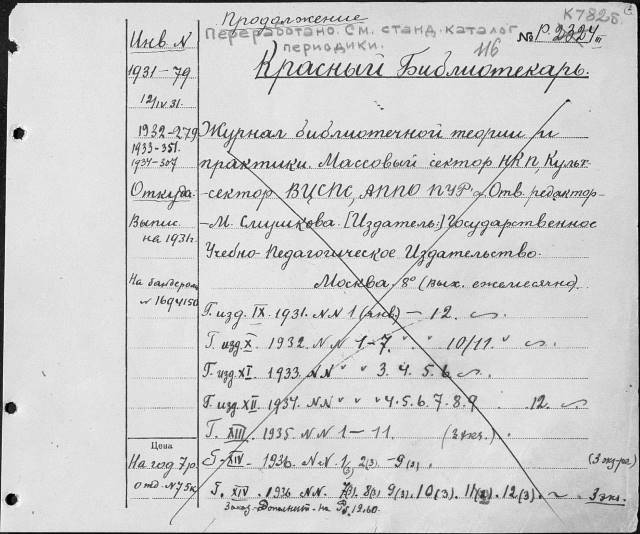 Продолжение
К7825
Переработано. См. станд. каталог
периодики.
116
№ Р. 2324 III
Инв. N
Красный Библиотекарь.
1931-79
12/IV.31.
1932-279
1933-351.
1934-307
Журнал библиотечной теории и
практики. Массовый сектор НКП, Культ-
Откуда.
сектор ВЦСПС, АППО ПУР. Отв. редактор-
Выпис.
на 1931 г.
-М. Слушкова. [Издатель:] Государственное
Учебно-Педагогическое Издательство.
На бандероли
N 1694150
Москва, 8° (вых. ежемесячно).
Г. изд. IX. 1931. N N 1 (янв.) — 12.
Г. изд. X. 1932. N N 1-7. " " 10/11. "
Г. изд. XI. 1933. N N " " 3. 4. 5. 6
Г. изд. XII. 1934. N N " " " 4. 5. 6. 7. 8. 9 . 12.
Г. XIII. 1935. N N 1 — 11. (3 экз.)
Цена
На год 7 р.
отд. N 75 к
Г. XIV. 1936. N N. 1(3) 2(3) -9(3). (3 экз-ра)
Г. XIV. 1936 N N. 7(3). 8(3) 9(3). 10(3). 11(2) 12(3). 3 экз.